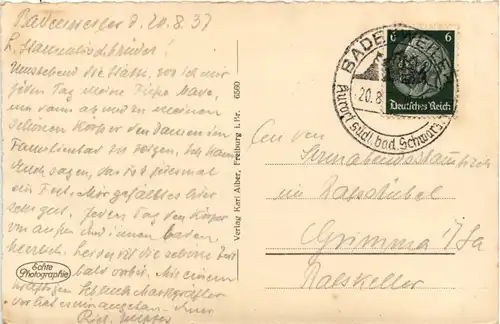 Badenweiler d. 20.8.37
L. Stammtischbrüder!
Umstehend die Stätte, wo ich mir
jeden Tag meine Fiesse bade,
um dann ab und zu meinen
schönen Körper den Damen im
Familienbad zu zeigen. Ich kann
Euch sagen, das ist jedesmal
ein Fest. Mir gefällt es hier
sehr gut. Jeden Tag den Körper
von außen und innen baden,
herrlich. Leider ist die schöne Zeit
bald vorbei. Mit einem
kräftigen Schluck Markgräfler
Echte
Photographie
Verlag Karl Alber, Freiburg i. Br. 6560
BADENWEILER
20.8.
Kurort südl. bad. Schwarzw.
6 6
Deutsches Reich
An den
Sonnabendstammtisch
im Ratsstübel
Grimma i/Sa
Ratskeller